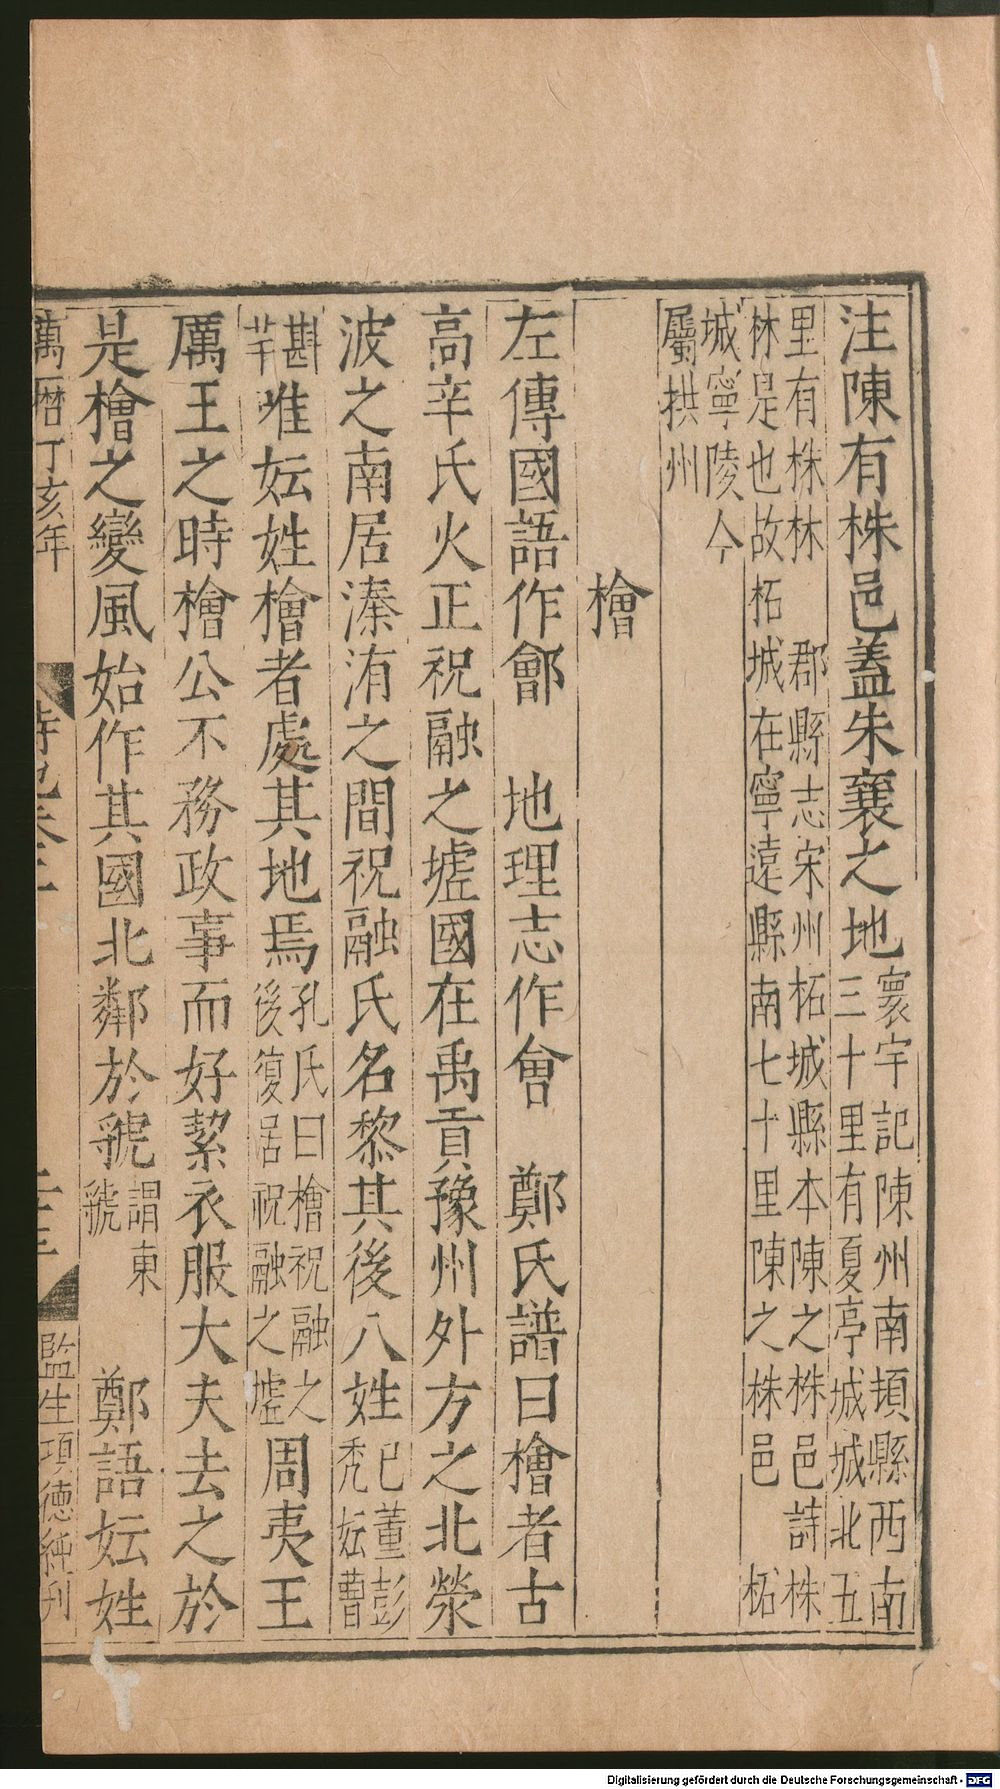 注陳有株邑蓋朱襄之地寰宇記陳州南頓縣西南
三十里有夏亭城城北五
里有株林　郡縣志宋州柘城縣本陳之株邑詩株
林是也故柘城在寧遠縣南七十里陳之株邑　柘
城寧陵今
屬拱州
檜
左傳國語作鄶　地理志作會　鄭氏譜曰檜者古
高辛氏火正祝融之墟國在禹貢豫州外方之北滎
波之南居溱洧之間祝融氏名黎其後八姓巳董彭
禿妘曹
斟
芊唯妘姓檜者處其地焉孔氏曰檜祝融之
後復居祝融之墟周夷王
厲王之時檜公不務政事而好絜衣服大夫去之於
是檜之變風始作其國北鄰於虢謂東
虢　鄭語妘姓
萬曆丁亥年
監生項德純刋
Digitalisierung gefördert durch die Deutsche Forschungsgemeinschaft - DFG